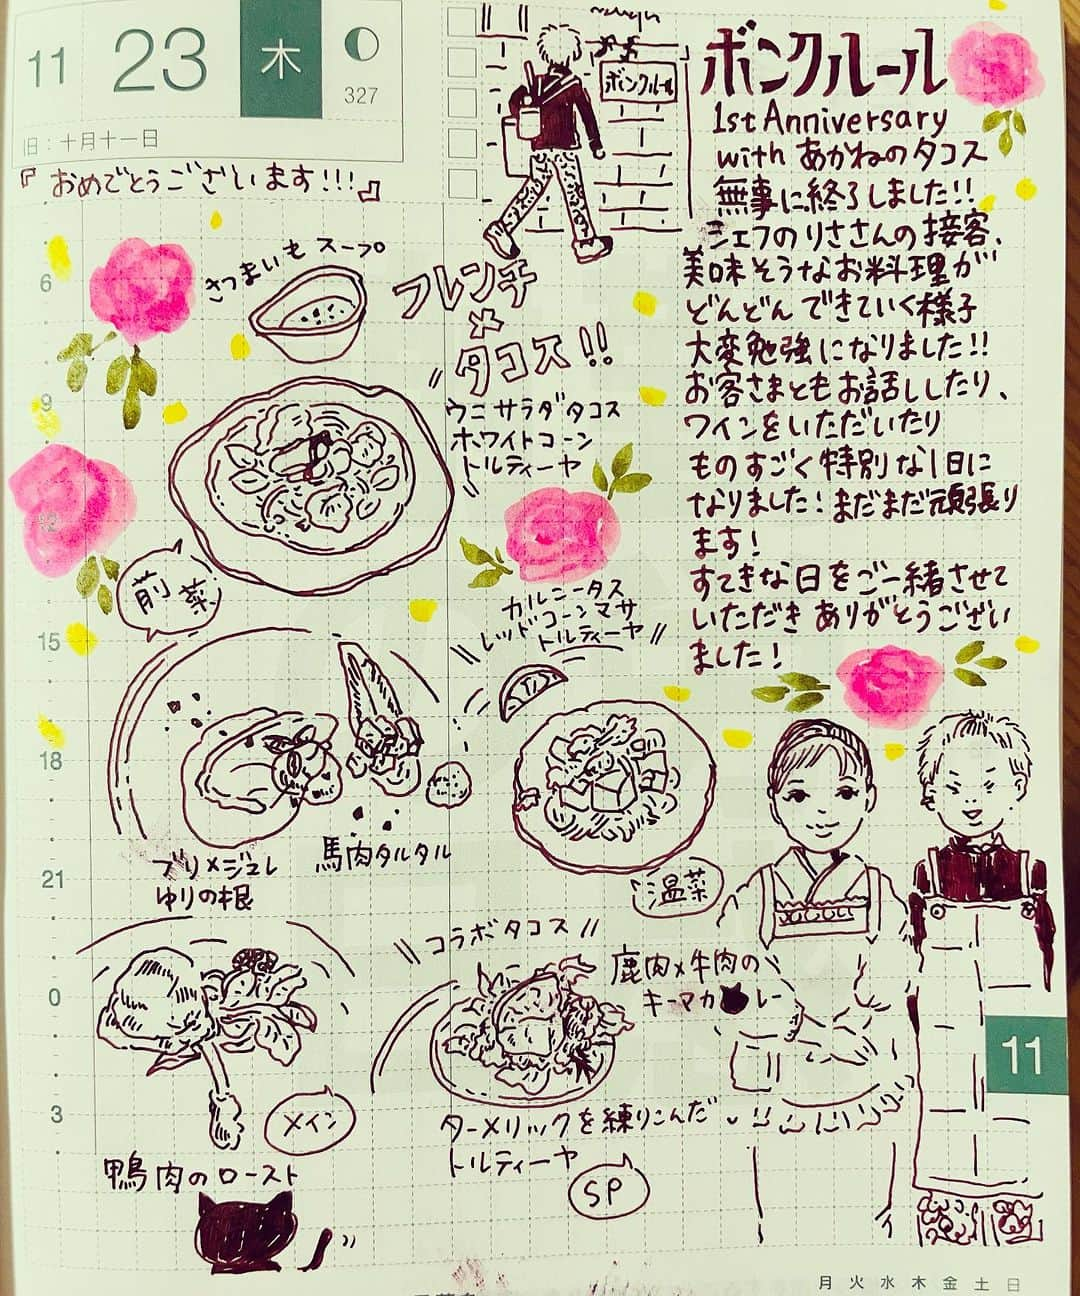 11 23 木
327
旧：十月十一日
『おめでとうございます!!!』
ボンクルール
ボンクルール
1st Anniversary
with あかねのタコス
無事に終了しました!!
シェフのりささんの接客、
美味そうなお料理が
どんどんできていく様子
大変勉強になりました!!
お客さまともお話ししたり、
ワインをいただいたり
ものすごく特別な1日に
なりました！まだまだ頑張り
ます！
すてきな日をご一緒させて
いただきありがとうござい
ました！
さつまいもスープ
フレンチ
×
タコス!!
ウニサラダタコス
ホワイトコーン
トルティーヤ
前菜
カルニータス
レッドコーンマサ
トルティーヤ
ブリ×ジュレ
ゆりの根
馬肉タルタル
温菜
コラボタコス
鹿肉×牛肉の
キーマカレー
ターメリックを練りこんだ
トルティーヤ
SP
メイン
鴨肉のロースト
6
9
12
15
18
21
0
3
11
月 火 水 木 金 土 日